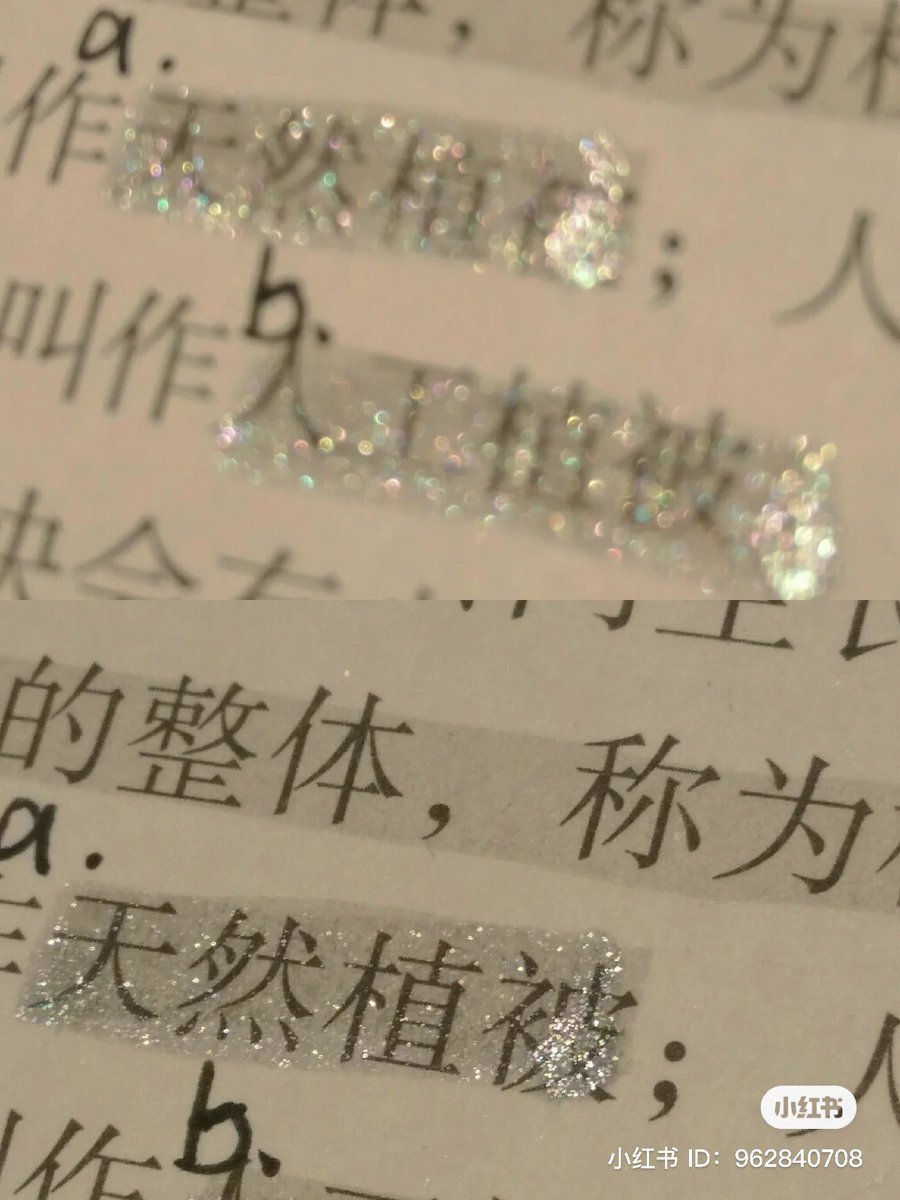 整体，称为
a.
作天然植被；人
b.
叫作人工植被
的整体，称为
a.
作天然植被；人
b.
叫作人工植被
小红书
小红书 ID：962840708